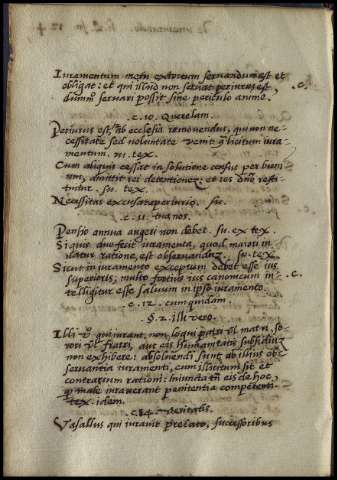 De iureiurando li. 2. 
Iuramentum metu extortum servandum est et
obligat: et qui illud non servat periurus est,
dummo servari possit sine periculo anime.
c. 10. Querelam.
Periurus est, ab ecclesia removendus, qui non ne-
cessitate sed voluntate venit illicitum iura-
mentum. ni. tex.
Cum aliquis cessit in solutione census per bien-
nium, amittit rei detentionem; et res dno resti-
tuitur. su. tex.
Necessitas excusat a periurio. su.
c. 11. tua nos.
Pensio annua augeri non debet. su. ex tex.
Si quis duo fecit iuramenta, quod maiori ni-
latur ratione, est observandum. su. tex.
Sicut in iuramento exceptum debet esse ius
superioris; multo fortius ius canonicum in-
telligitur esse salvum in ipso iuramento.
c. 12. cum quidam.
§. 2. illi vero.
Illi v̄o qui iurant, non loqui patri vl matri, so-
rori vl fratri, aut eis humanitatis subsidium
non exhibere: absolvendi sunt ab illius ob-
servantia iuramenti, cum illicitum sit et
contrarium rationi: iniuncta tn eis de hoc,
q male iuraverant penitentia competenti.
tex. idem.
c. 14. veritatis.
Vasallus qui iuravit prelato, successoribus